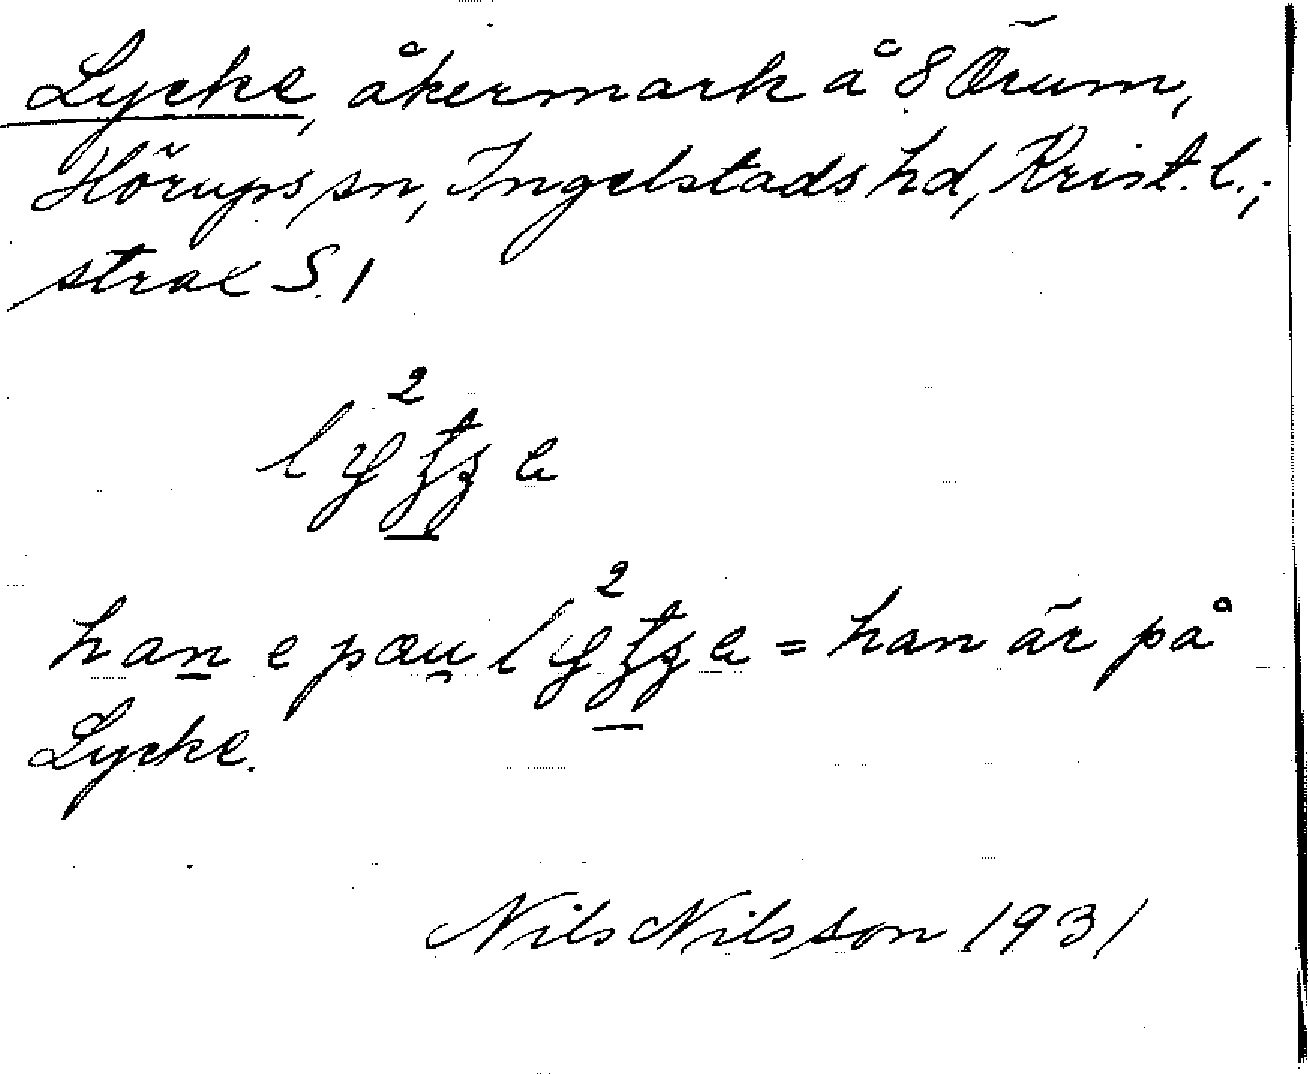 Lycke, åkermark å 8 Örum,
Hörups sn, Ingelstads hd, Krist. l.,
strax S. 1
han e pæu = han är på
Lycke.
Nils Nilsson 1931